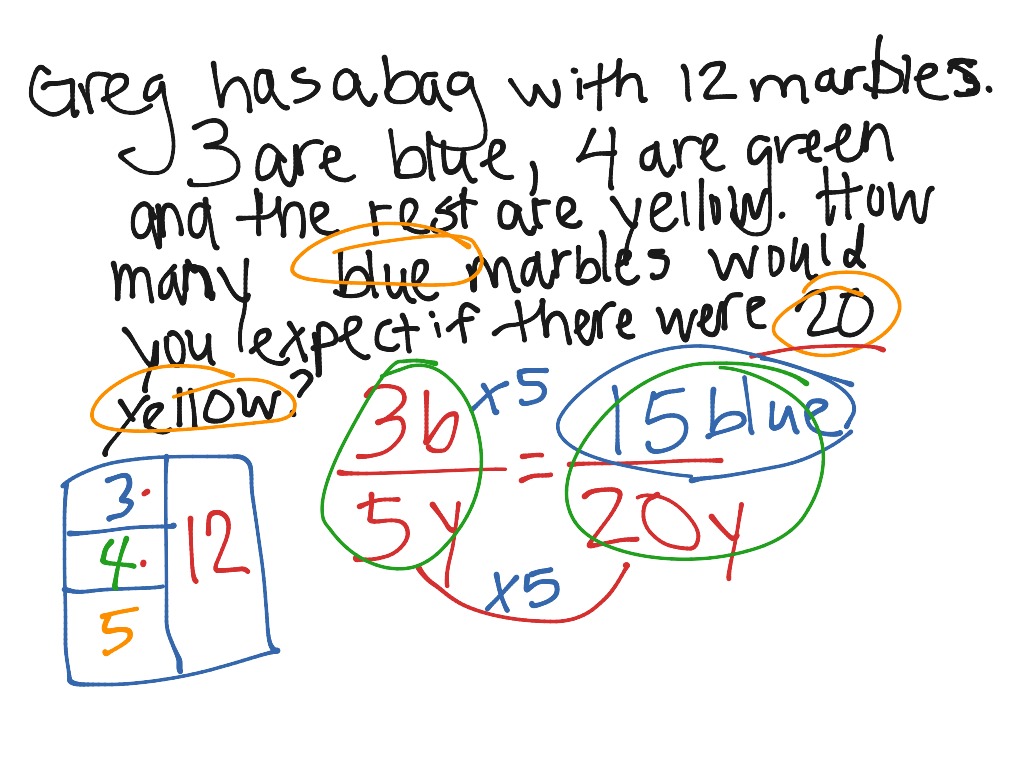 Greg has a bag with 12 marbles.
3 are blue, 4 are green
and the rest are yellow. How
many blue marbles would
you expect if there were 20
yellow?
3b x5 = 15 blue
5y x5 20y
3. 12
4.
5